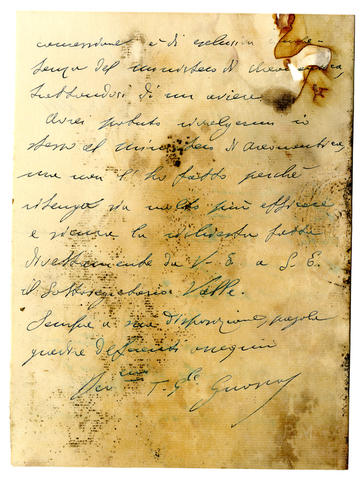 concessione è di esclusiva
tenza del ministero di
trattandosi di un aviere.
Avrei potuto rivolgermi io
stesso al ministero di aeronautica,
ma non l'ho fatto perchè
ritengo sia molto più efficace
e sicura la richiesta fatta
direttamente da V. E. a S. E.
il Sottosegretario Valle.
Sempre a sua disposizione, porgole
questa deferenti ossequi
Dev.mo